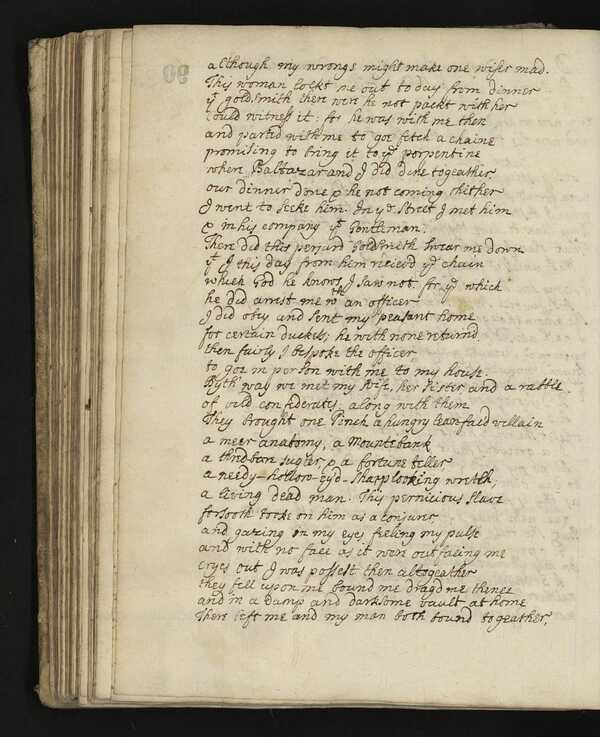 although my wrongs might make one wiser mad.
This woman lockt me out to day from dinner
yt goldsmith there were he not packt with her
could witness it: for he was with me then
and parted with me to goe fetch a chaine
promising to bring it to ye porpentine
where Baltazar and I did dine togeather
our dinner done & he not coming thither
I went to seeke him. In ye Street I met him
& in his company yt Gentleman.
There did this perjurd Goldsmith swear me down
yt I this day from him reciev'd ye chain
which God he knows I saw not. for ye which
he did arrest me wth an officer
I did obey and sent my peasant home
for certain duckets; he with none returnd
then fairly I bespoke the officer
to goe in person with me to my house.
Byth way we met my wife, her sister and a rabble
of vild confederates; along with them
They brought one Pinch a hungry lean-facd villain
a meer anatomy, a Mountebank
a thrid-bare jugler & a fortune teller
a needy-hollow-eyd-sharp looking wretch,
a living dead man. This pernicious slave
forsooth tooke on him as a conjurer
and gazing on my eyes, feeling my pulse
and with no face as it were outfacing me
cryes out I was possest then altogeather
they fell upon me bound me dragd me thence
and in a damp and darksome vault at home
There left me and my man both bound togeather,